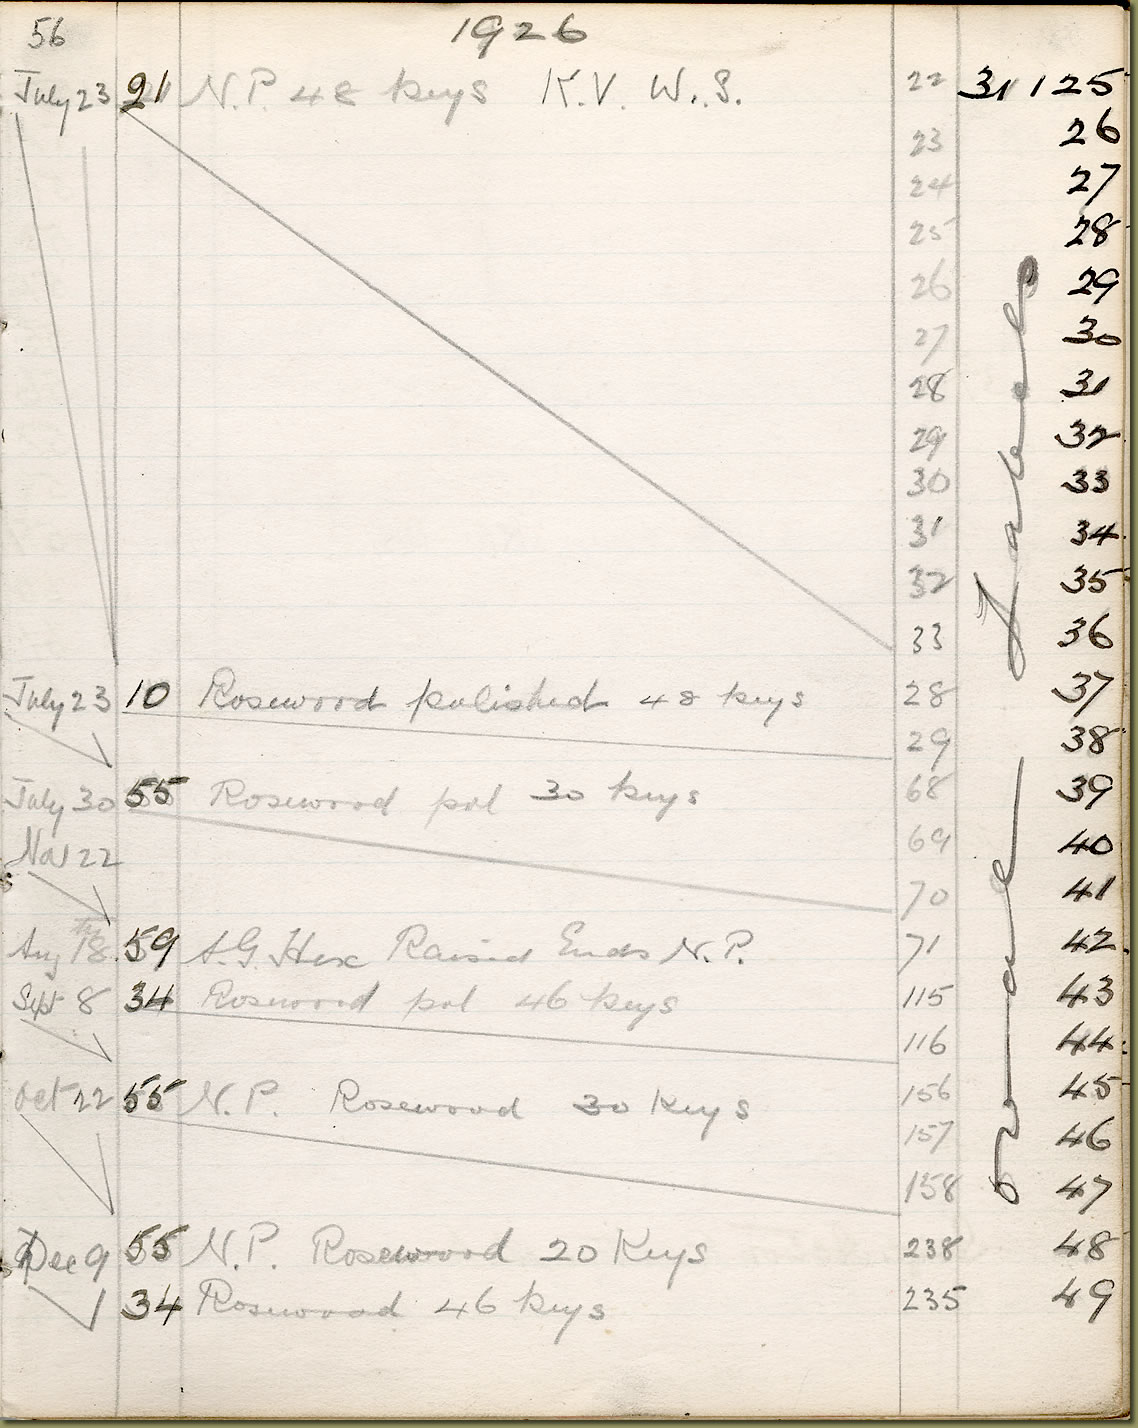 56 1926
July 23 21 N.P. 48 keys K.V. W.S. 22 31125
23 26
24 27
25 28
26 29
27 30
28 31
29 32
30 33
31 34
32 35
33 36
July 23 10 Rosewood polished 48 keys 28 37
29 38
July 30 55 Rosewood pol 30 keys 68 39
Nov 22 69 40
70 41
Aug 18 59 A.G. Hex Raised Ends N.P. 71 42
Sept 8 34 Rosewood pol 46 keys 115 43
116 44
Oct 22 55 N.P. Rosewood 30 Keys 156 45
157 46
158 47
Dec 9 55 N.P. Rosewood 20 Keys 238 48
34 Rosewood 46 keys 235 49
oval Labels